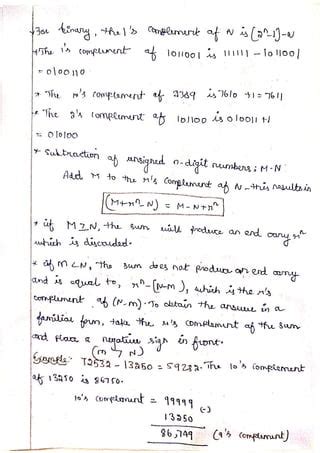 * For binary, the 1's complement of N is (2ⁿ-1)-N
* The 1's compliment of 1011001 is 111111 - 1011001
= 0100110
* The r's compliment of 2389 is 7610 +1 = 7611
* The 2's compliment of 101100 is 010011 +1
= 010100
* Subtraction of unsigned n-digit numbers; M-N
Add M to the r's Complement of N - this results in
(M+rⁿ-N) = M-N+rⁿ
* if M≥N, the sum will produce an end carry rⁿ
which is discarded.
* if M<N, the sum does not produce an end carry
and is equal to, rⁿ-(N-M), which is the r's
complement of (N-M). To obtain the answer in a
familiar form, take the r's complement of the sum
and place a negative sign in front.
(M > N)
Example: 72532 - 13250 = 59282. The 10's complement
of 13250 is 86750.
10's compliment = 99999
(-)
13250
86,749 (9's compliment)